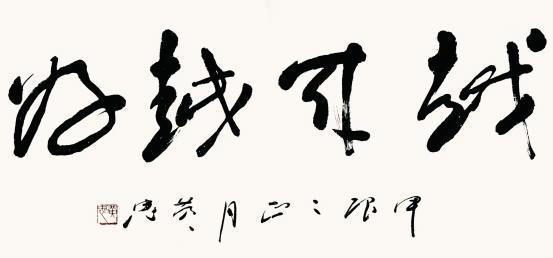 越来越好
甲辰之正月